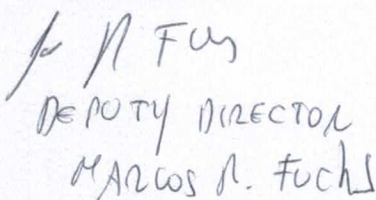 DEPUTY DIRECTOR
MARCOS R. FUCHS